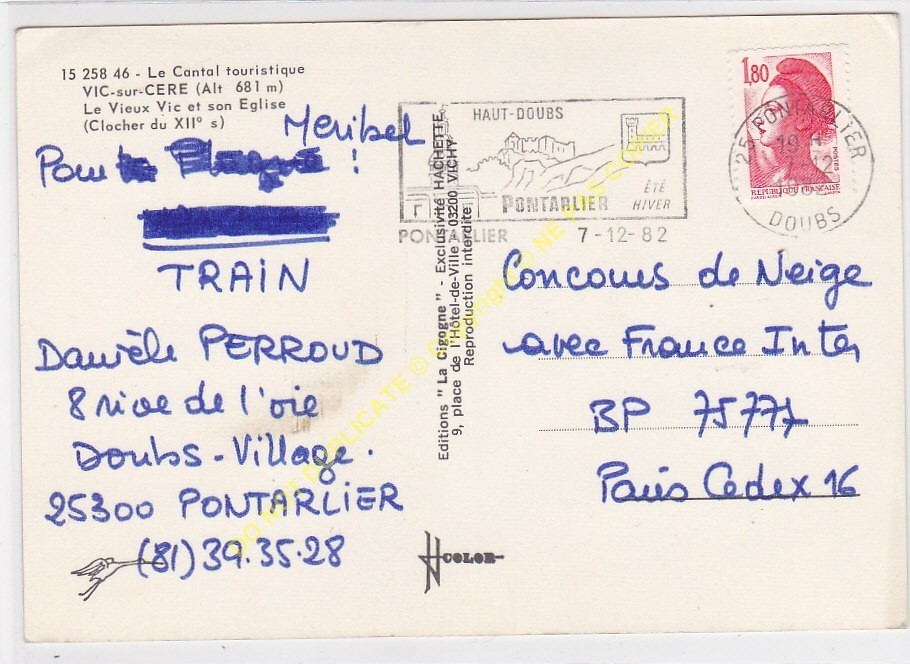 15 258 46 - Le Cantal touristique
VIC-sur-CERE (Alt 681 m)
Le Vieux Vic et son Eglise
(Clocher du XII° s)
Meribel
Pour !
TRAIN
Danièle PERROUD
8 rive de l'oie
Doubs-Village.
25300 PONTARLIER
(81) 39.35.28
Editions "La Cigogne" - Exclusivité HACHETTE
9, place de l'Hôtel-de-Ville - 03200 VICHY
Reproduction interdite
COLOR
HAUT-DOUBS
PONTARLIER
ÉTÉ
HIVER
PONTARLIER 7-12-82
1,80
POSTES
REPUBLIQUE FRANÇAISE
25 PONTARLIER
DOUBS
Concours de Neige
avec France Inter
BP 75777
Paris Cedex 16